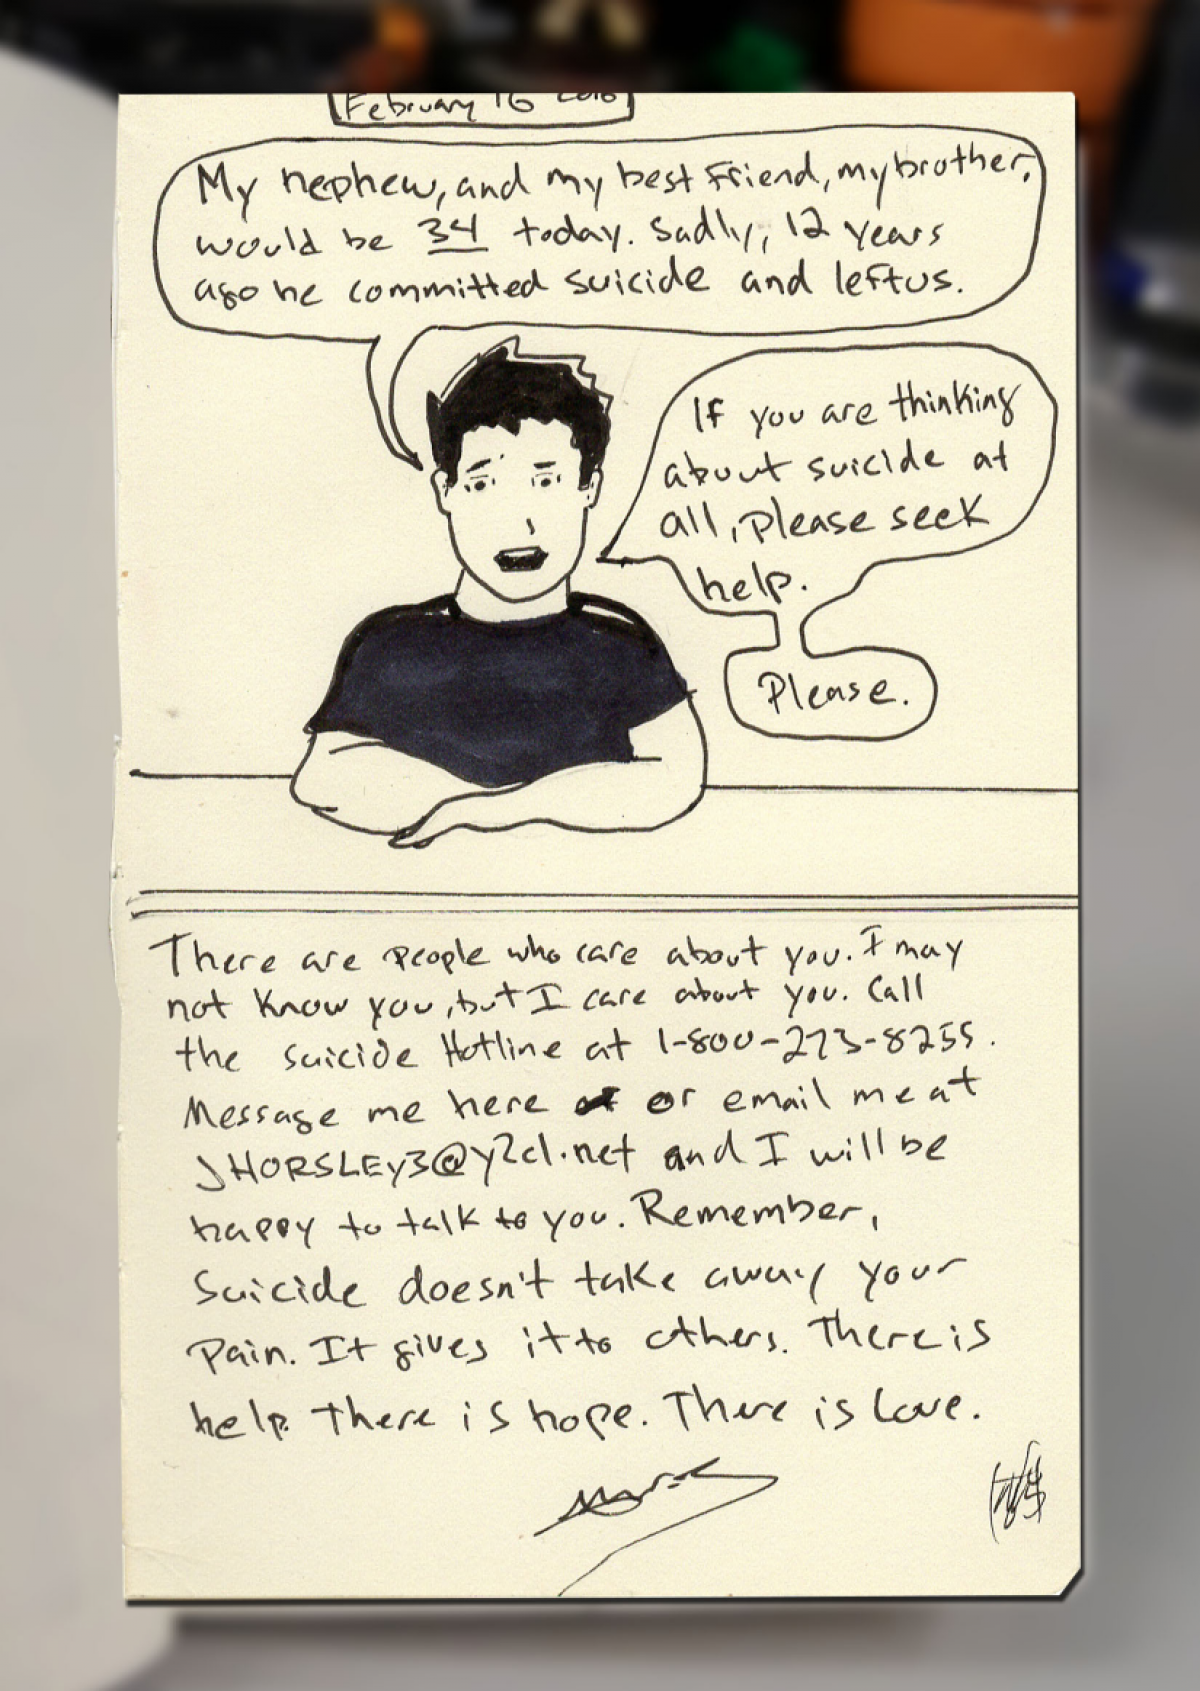 February 16 2016
My nephew, and my best friend, my brother,
would be 34 today. Sadly, 12 years
ago he committed suicide and left us.
If you are thinking
about suicide at
all, please seek
help.
Please.
There are people who care about you. I may
not know you, but I care about you. Call
the suicide Hotline at 1-800-273-8255.
Message me here or email me at
JHORSLEY3@y2cl.net and I will be
happy to talk to you. Remember,
Suicide doesn't take away your
Pain. It gives it to others. There is
help. There is hope. There is Love.